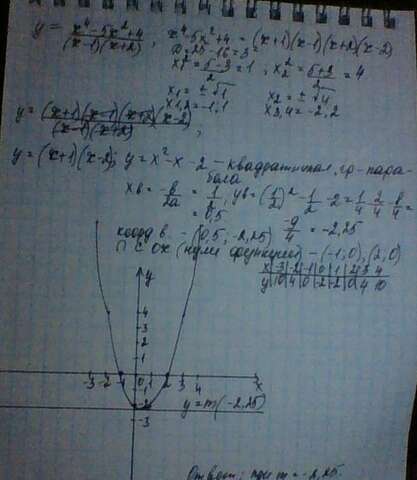 y = x⁴-5x²+4 / (x-1)(x+2) , x⁴-5x²+4 = (x+1)(x-1)(x+2)(x-2)
D=25-16=3²
x₁² = 5-3 / 2 = 1 , x₂² = 5+3 / 2 = 4
x₁ = ±√1 x₂ = ±√4
x₁,₂ = -1, 1 x₃,₄ = -2, 2
y = (x+1)(x-1)(x+2)(x-2) / (x-1)(x+2) ,
y = (x+1)(x-2); y = x²-x-2 - квадратичная, гр-пара
бола
xв = -в/2a = 1/2 = 0,5 , yв = (1/2)² - 1/2 - 2 = 1/4 - 2/4 - 8/4 =
= -9/4 = -2,25
коорд в. - (0,5; -2,25)
∩ с ОХ (нули функции) - (-1; 0), (2; 0)
x -3 -2 -1 0 1 2 3 4
y 10 4 0 -2 -2 0 4 10
y
4
3
2
1
-3 -2 -1 0 1 2 3 4 x
-2
-3
y = m (-2,25)
Ответ: при m = -2,25.